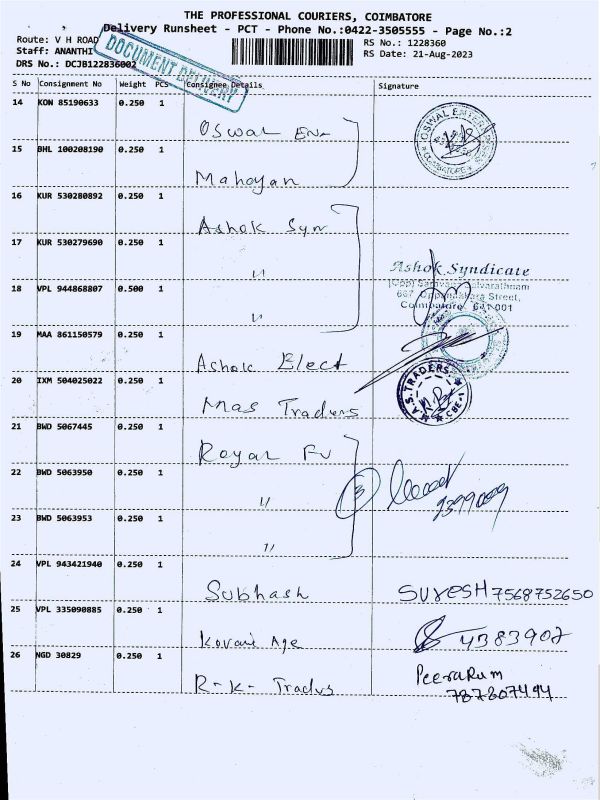 THE PROFESSIONAL COURIERS, COIMBATORE
Delivery Runsheet - PCT - Phone No.:0422-3505555 - Page No.:2
Route: V H ROAD
RS No.: 1228360
Staff: ANANTHI
RS Date: 21-Aug-2023
DRS No.: DCJB122836002
DOCUMENT DELIVERY
S No Consignment No Weight PCS Consignee Details Signature
14 KON 85190633 0.250 1
Oswal Ent
OSWAL ENTER
COIMBATORE
15 BHL 100208190 0.250 1
Mahayan
16 KUR 530280892 0.250 1
Ashok Syn
17 KUR 530279690 0.250 1
"
Ashok Syndicate
667, Oppanakara Street,
Coimbatore 641 001
18 VPL 944868807 0.500 1
"
19 MAA 861150579 0.250 1
Ashok Elect
20 IXM 504025022 0.250 1
Mas Traders
M.A.S. TRADERS
CBE-1
21 BWD 5067445 0.250 1
Royal Fu
22 BWD 5063950 0.250 1
"
3
23 BWD 5063953 0.250 1
"
24 VPL 943421940 0.250 1
Subhash
SURESH 7568752650
25 VPL 335090885 0.250 1
Kovai Age
4383907
26 NGD 30829 0.250 1
R-K- Traders